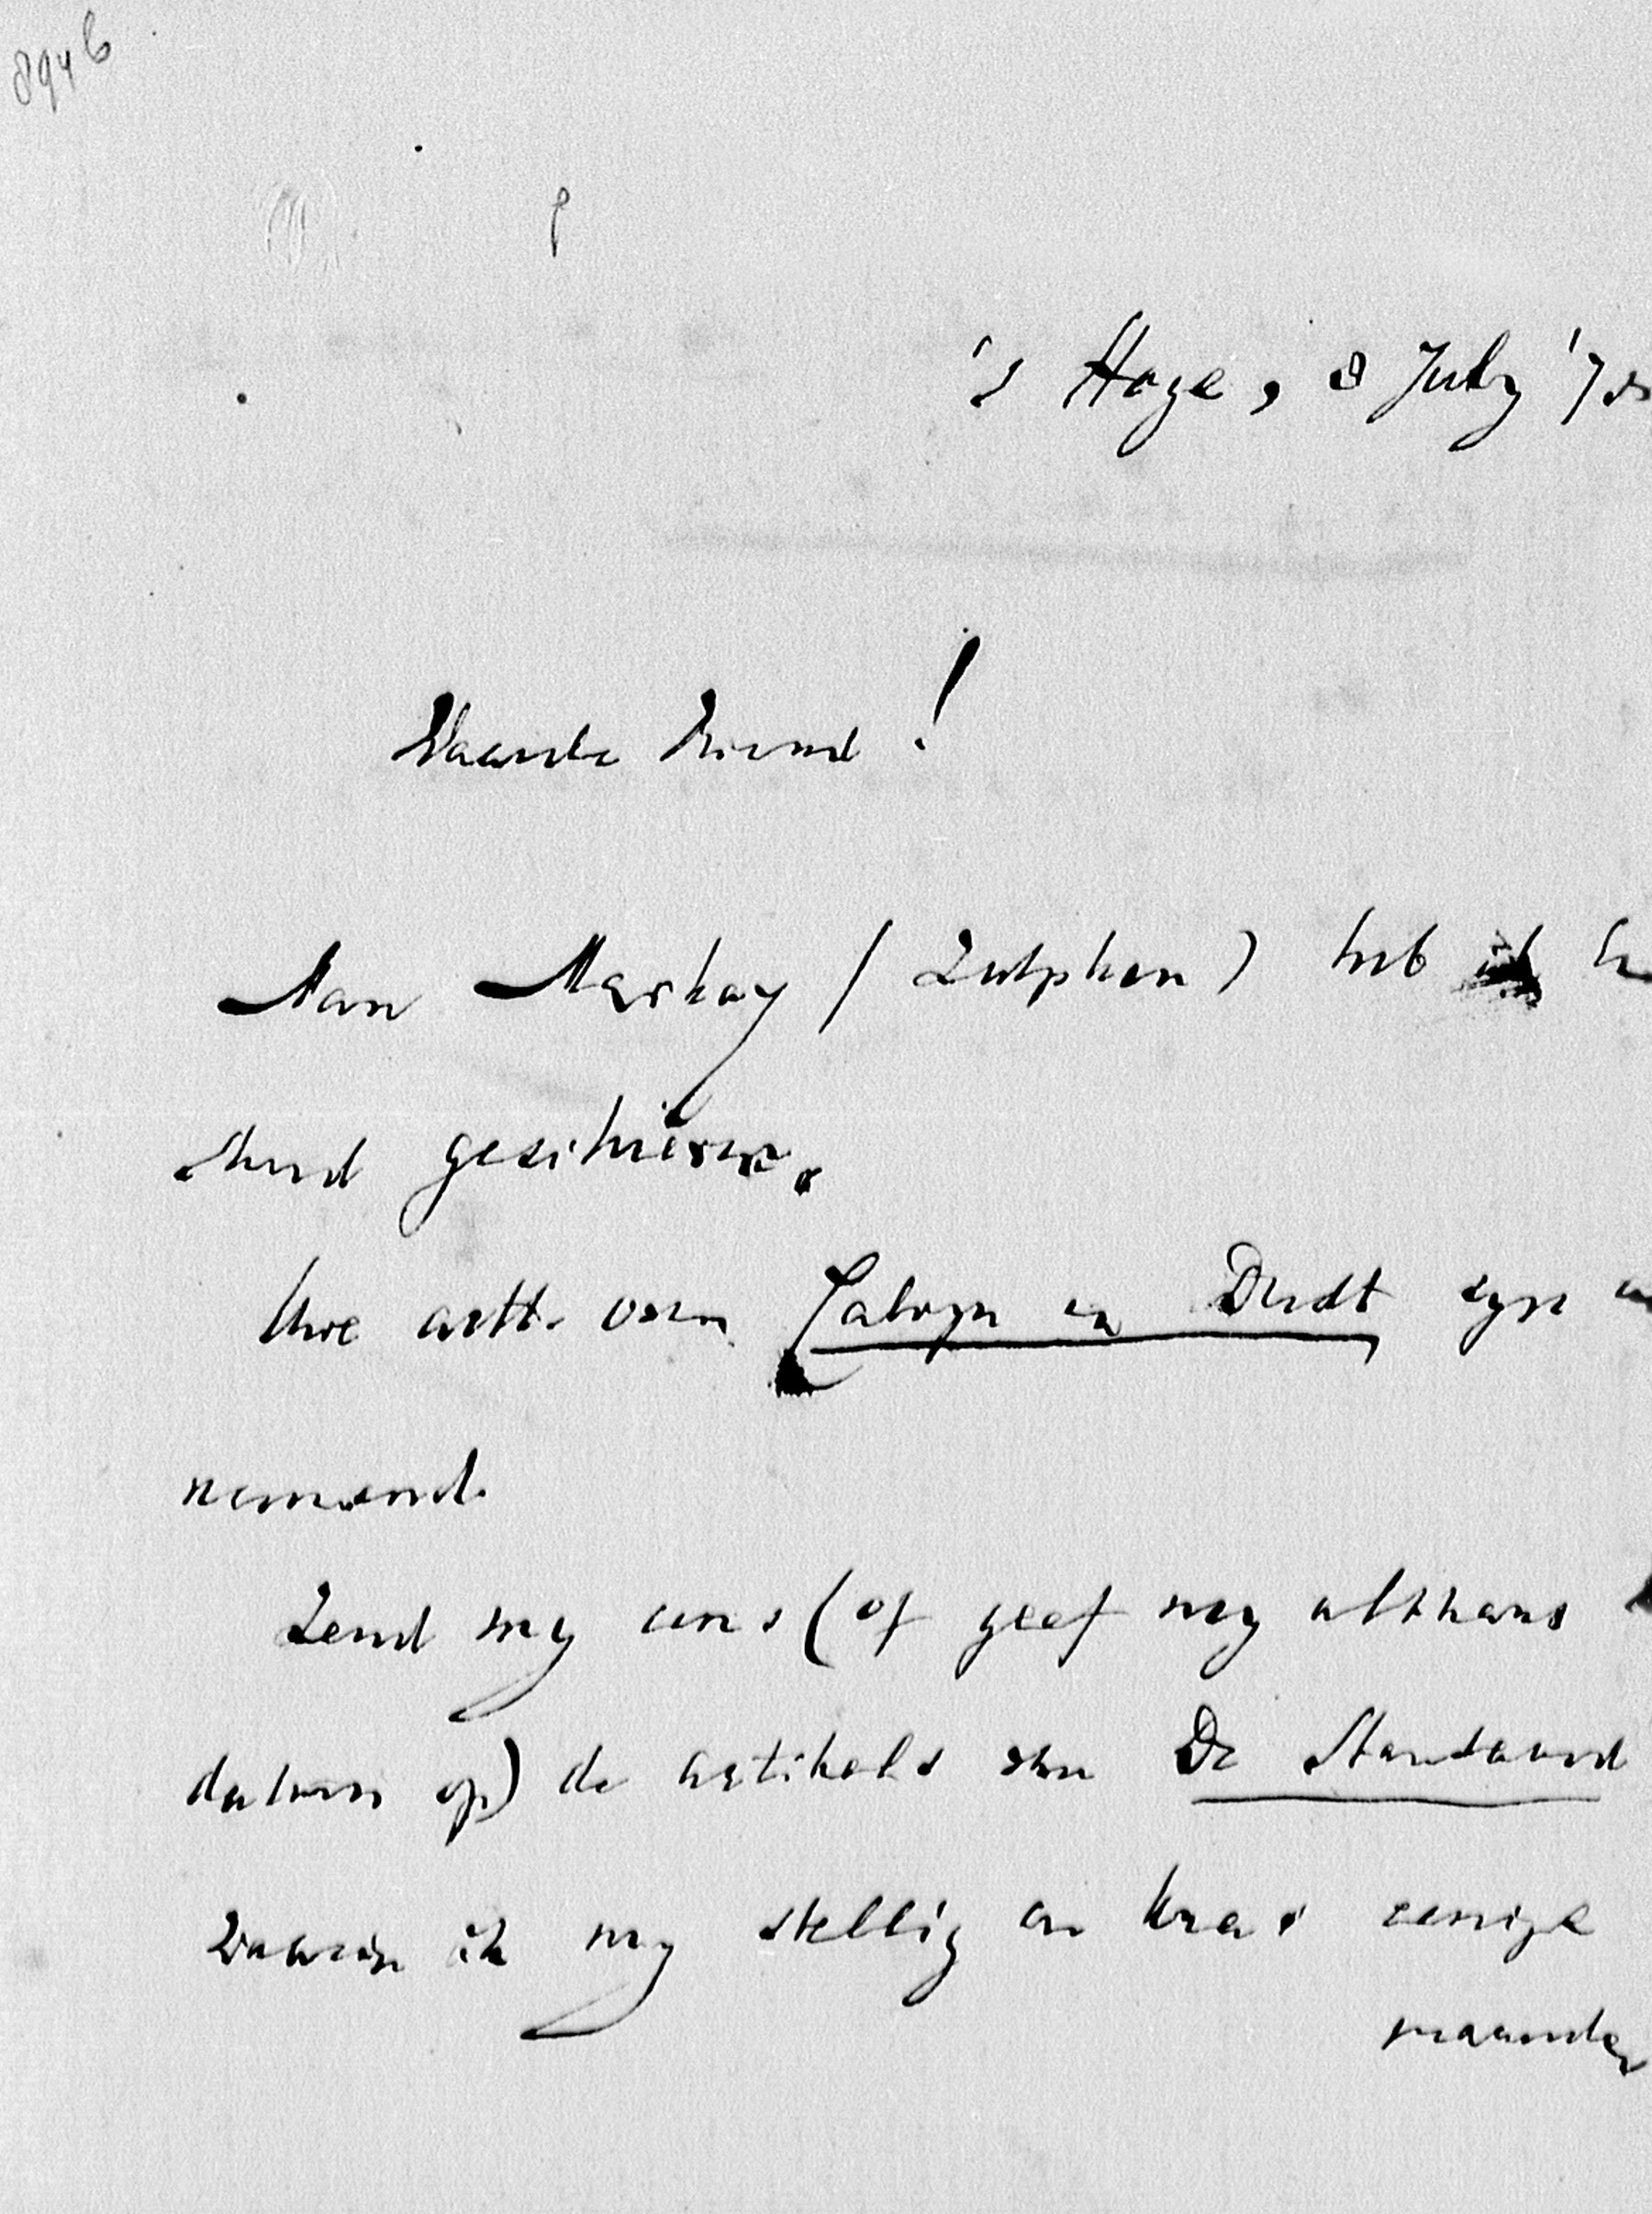 8946
's Hage, 8 July '7
Waarde Vriend!
Aan Mackay (Zutphen) heb ik
geschreven.
Uwe artt. over Calvyn en Dordt zyn
niemand.
Zend my eens (of geef my althans
datum op) de artikels van De Standaard
waarin ik my stellig en kras eenige
maanden